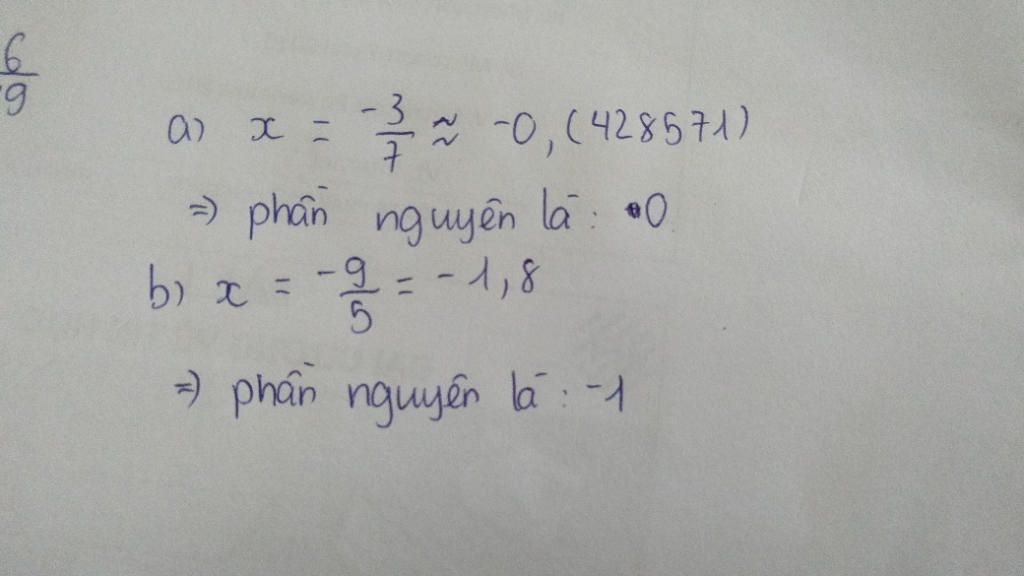 6
9
a) x = -3/7 ≈ -0,(428571)
=) phần nguyên là: 0
b) x = -9/5 = -1,8
=) phần nguyên là: -1